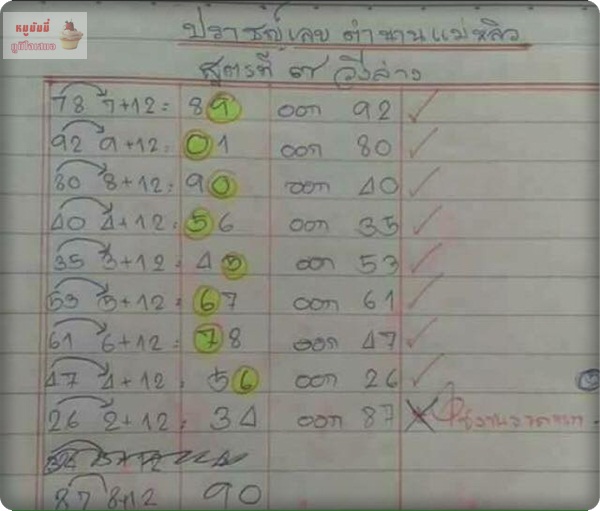 หมูบัมมี่
ปราชญ์เลข ตำนานแม่หลิว
สูตรที่ ๗ วิ่งล่าง
78 7+12= 89 ออก 92 ✓
92 9+12= 01 ออก 80 ✓
80 8+12= 90 ออก 40 ✓
40 4+12= 56 ออก 35 ✓
35 3+12= 45 ออก 53 ✓
53 5+12= 67 ออก 61 ✓
61 6+12= 78 ออก 47 ✓
47 4+12= 56 ออก 26 ✓
26 2+12= 34 ออก 87 ✗
87 8+12 90